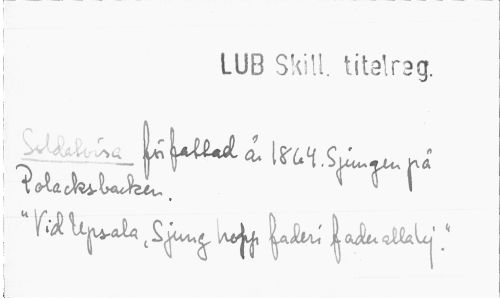 LUB Skill. titelreg.
Soldatvisa författad år 1864. Sjungen på
Polacksbacken.
"Vid Upsala, Sjung hopp faderi faderallalej."